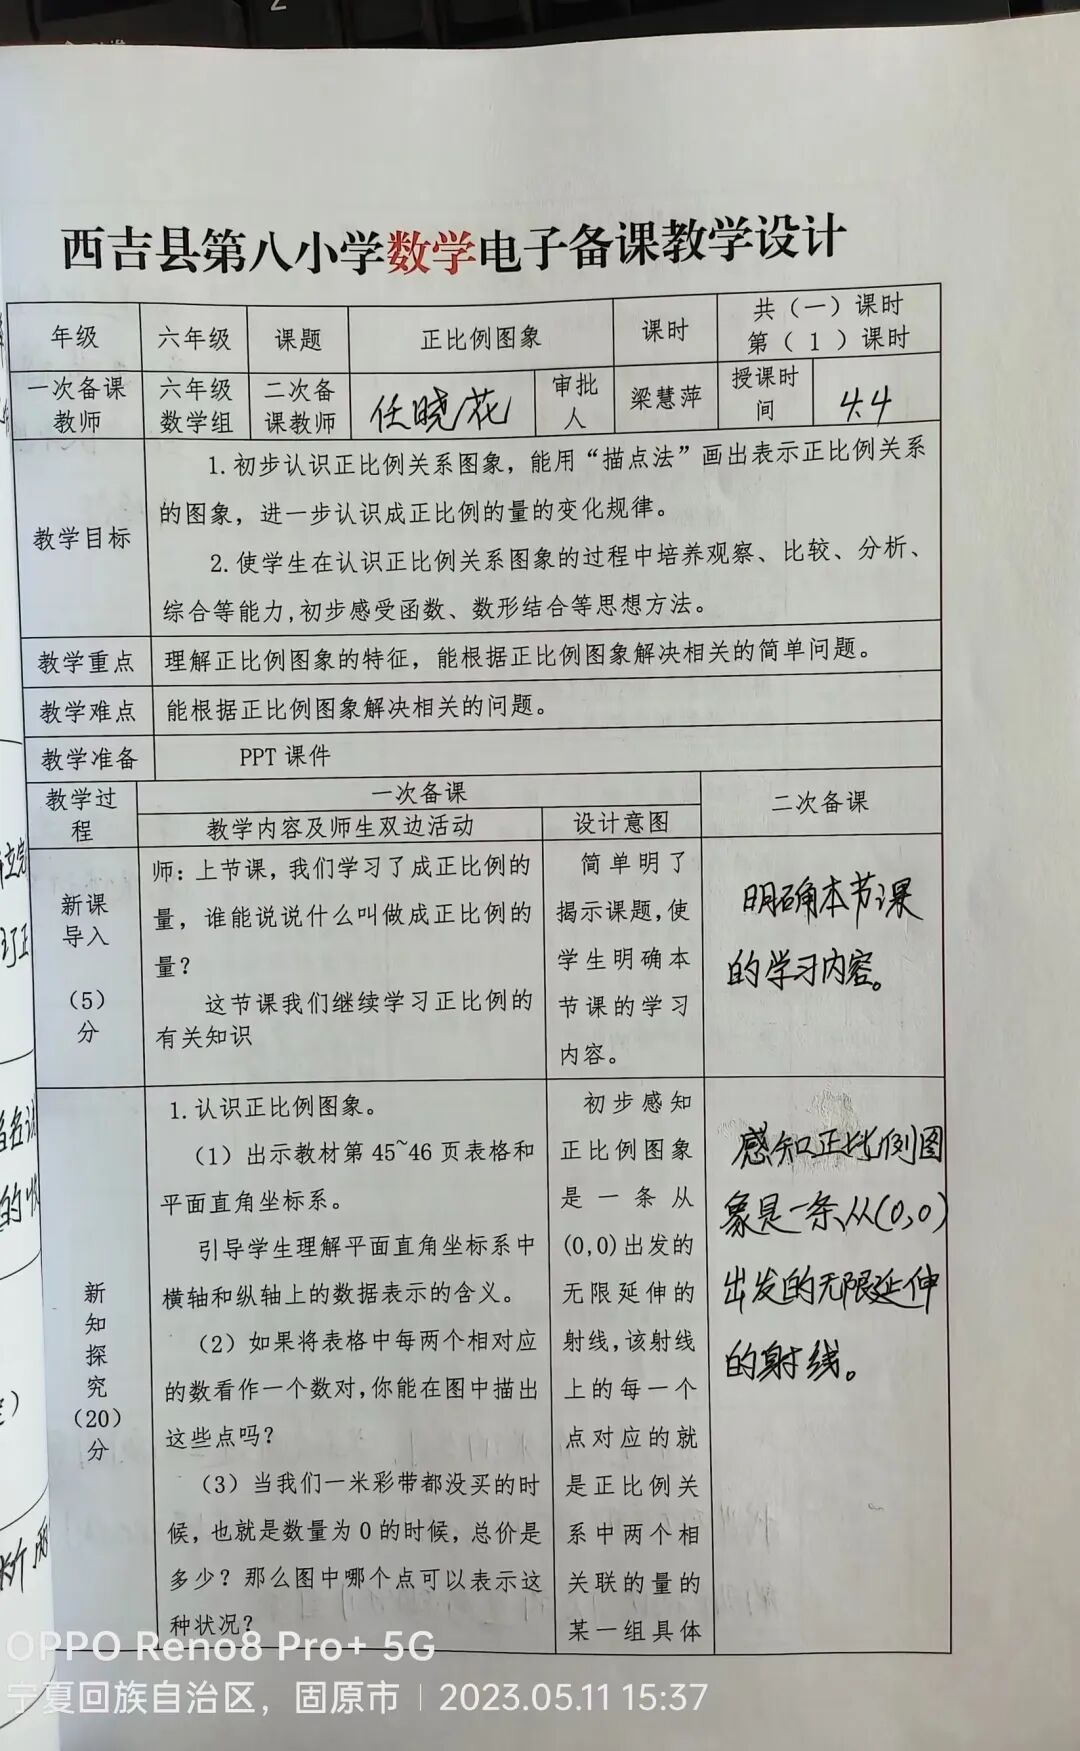 西吉县第八小学数学电子备课教学设计
年级
六年级
课题
正比例图象
课时
共（一）课时
第（1）课时
一次备课
教师
六年级
数学组
二次备
课教师
任晓花
审批
人
梁慧萍
授课时
间
4.4
教学目标
1.初步认识正比例关系图象，能用“描点法”画出表示正比例关系
的图象，进一步认识成正比例的量的变化规律。
2.使学生在认识正比例关系图象的过程中培养观察、比较、分析、
综合等能力,初步感受函数、数形结合等思想方法。
教学重点
理解正比例图象的特征，能根据正比例图象解决相关的简单问题。
教学难点
能根据正比例图象解决相关的问题。
教学准备
PPT 课件
教学过
程
一次备课
二次备课
教学内容及师生双边活动
设计意图
新课
导入
（5）
分
师：上节课，我们学习了成正比例的
量，谁能说说什么叫做成正比例的
量？
这节课我们继续学习正比例的
有关知识
简单明了
揭示课题,使
学生明确本
节课的学习
内容。
明确本节课
的学习内容。
新
知
探
究
（20）
分
1.认识正比例图象。
（1）出示教材第 45~46 页表格和
平面直角坐标系。
引导学生理解平面直角坐标系中
横轴和纵轴上的数据表示的含义。
（2）如果将表格中每两个相对应
的数看作一个数对,你能在图中描出
这些点吗？
（3）当我们一米彩带都没买的时
候，也就是数量为 0 的时候，总价是
多少？那么图中哪个点可以表示这
种状况？
初步感知
正比例图象
是一条从
(0,0)出发的
无限延伸的
射线,该射线
上的每一个
点对应的就
是正比例关
系中两个相
关联的量的
某一组具体
感知正比例图
象是一条从(0,0)
出发的无限延伸
的射线。
OPPO Reno8 Pro+ 5G
宁夏回族自治区，固原市 | 2023.05.11 15:37